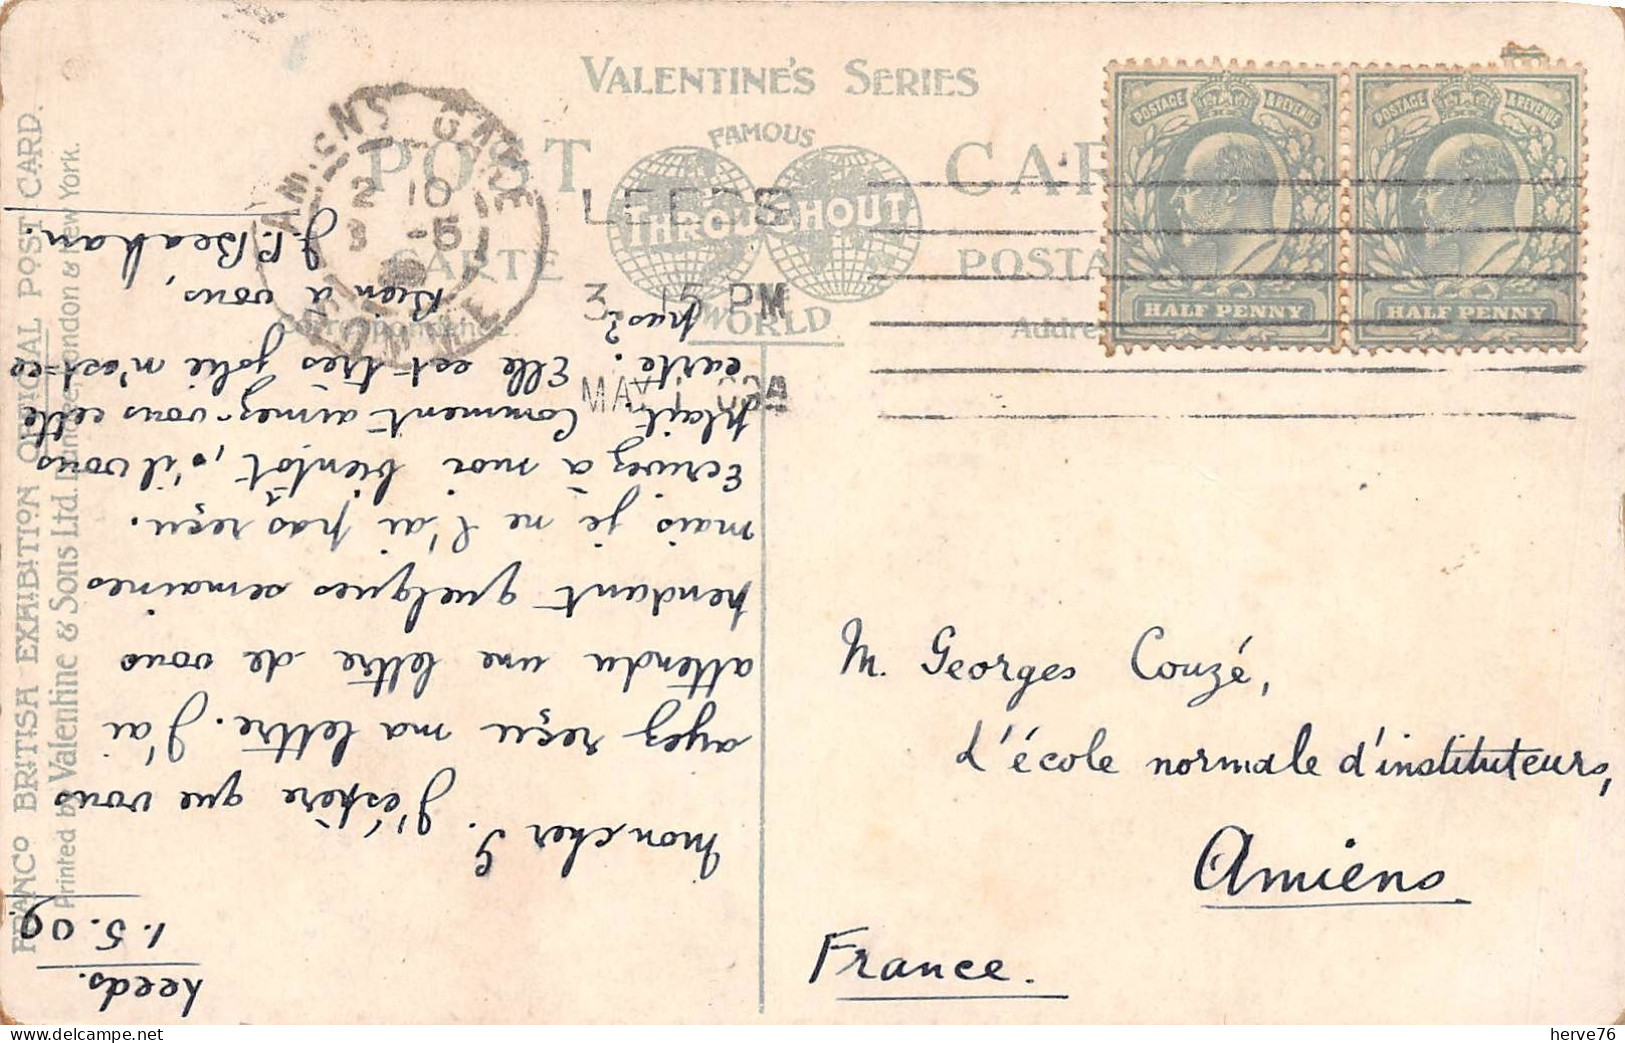 VALENTINE'S SERIES
POST CAR
FAMOUS
THROUGHOUT
WORLD
CARTE POSTA
Correspondence.
Addre
FRANCO BRITISH EXHIBITION OFFICIAL POST CARD.
Printed by Valentine & Sons Ltd. Dundee, London & New York.
POSTAGE & REVENUE
HALF PENNY
POSTAGE & REVENUE
HALF PENNY
LEEDS
3. 15 PM
MAY 1 09A
AMIENS GARE
2 10
3 -5
SOMME
Leeds.
1.5.09.
Mon cher G. J'espère que vous
ayez reçu ma lettre. J'ai
attendu une lettre de vous
pendant quelques semaines
mais je ne l'ai pas reçu.
Ecrivez à moi bientôt, s'il vous
plait. Comment aimez-vous cette
carte. Elle est très jolie n'est-ce
pas?
Bien à vous,
J.P. Beahan.
M. Georges Couzé,
L'école normale d'instituteurs,
Amiens
France.
herve76